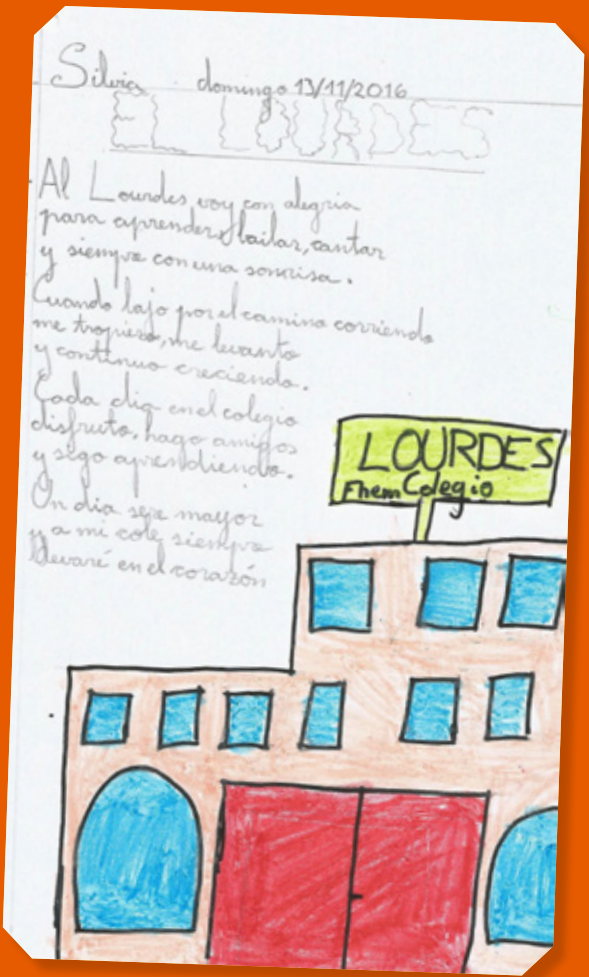 Silvia domingo 13/11/2016
EL LOURDES
Al Lourdes, voy con alegria
para aprender, bailar, cantar
y siempre con una sonrisa.
Cuando bajo por el camino corriendo
me tropiezo, me levanto
y continuo creciendo.
Cada dia en el colegio
disfruto, hago amigos
y sigo aprendiendo.
Un dia seré mayor
y a mi cole siempre
llevaré en el corazón
LOURDES
Fhem Colegio